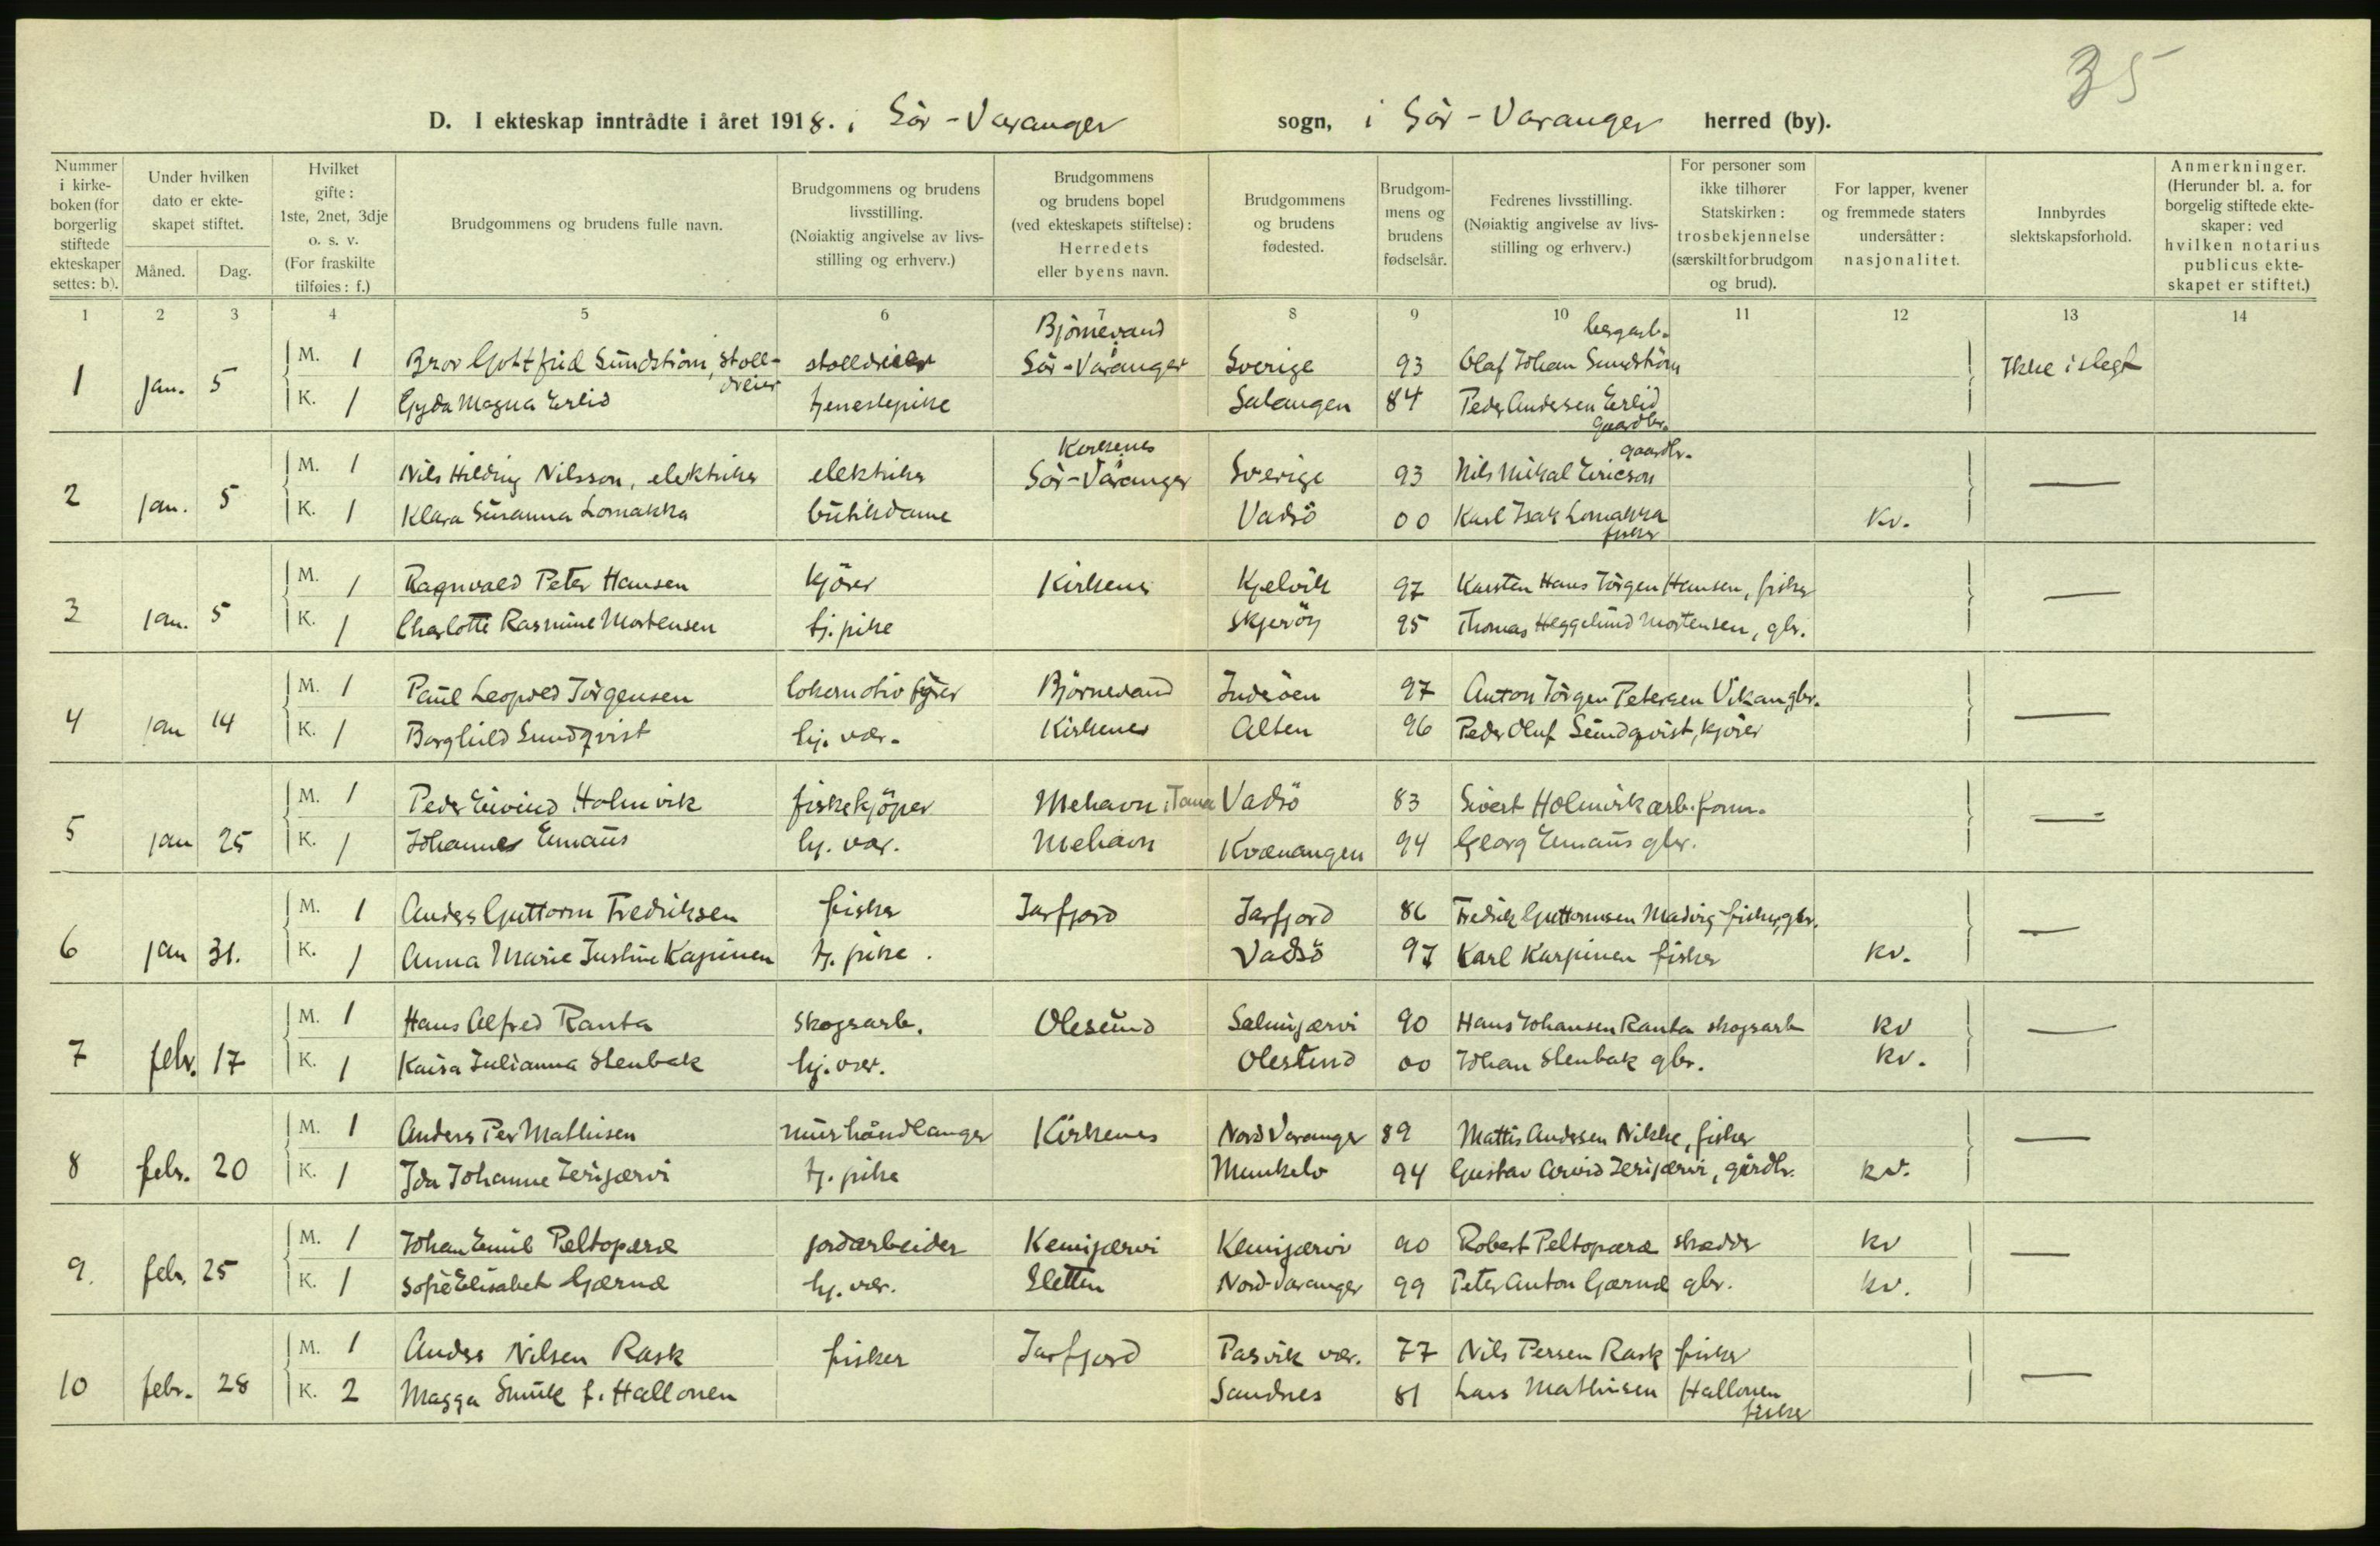 35
D. I ekteskap inntrådte i året 1918. i Sör-Varanger sogn, i Sör-Varanger herred (by).
Nummer i kirkeboken (for borgerlig stiftede ekteskaper settes: b).
Under hvilken dato er ekteskapet stiftet.
Måned. Dag.
Hvilket gifte: 1ste, 2net, 3dje o. s. v. (For fraskilte tilføies: f.)
Brudgommens og brudens fulle navn.
Brudgommens og brudens livsstilling. (Nøiaktig angivelse av livsstilling og erhverv.)
Brudgommens og brudens bopel (ved ekteskapets stiftelse): Herredets eller byens navn.
Brudgommens og brudens fødested.
Brudgommens og brudens fødselsår.
Fedrenes livsstilling. (Nøiaktig angivelse av livsstilling og erhverv.)
For personer som ikke tilhører Statskirken: trosbekjennelse (særskilt for brudgom og brud).
For lapper, kvener og fremmede staters undersåtter: nasjonalitet.
Innbyrdes slektskapsforhold.
Anmerkninger. (Herunder bl. a. for borgelig stiftede ekteskaper: ved hvilken notarius publicus ekteskapet er stiftet.)
1 2 3 4 5 6 7 8 9 10 11 12 13 14
Björnevand bergarb.
1 jan. 5 M. 1 Bror Gottfrid Sundström, stoll- stolldreier Sör-Varanger Sverige 93 Olaf Johan Sundström Ikke i slegt
dreier
K. 1 Gyda Magna Erlid tjenestepike Salangen 84 Peder Andersen Erlid
gaardbr.
Kirkenes gaardbr.
2 jan. 5 M. 1 Nils Hilding Nilsson, elektriker elektriker Sör-Varanger Sverige 93 Nils Mikal Ericson —
K. 1 Klara Susanna Lomakka butikdame Vadsö 00 Karl Isak Lomakka Kv.
fisker
3 jan. 5 M. 1 Ragnvald Peter Hansen kjörer Kirkenes Kjelvik 97 Karsten Hans Jörgen Hansen, fisker —
K. 1 Charlotte Rasmine Mortensen tj. pike Skjeröy 95 Thomas Heggelund Mortensen, gbr.
4 jan 14 M. 1 Paul Leopold Jörgensen lokomotivfyrer Björnevand Inderöen 97 Anton Jörgen Petersen Vikan gbr. —
K. 1 Borghild Sundqvist hj. vær. Kirkenes Alten 96 Peder Oluf Sundqvist, kjörer
5 jan 25 M. 1 Peder Eivind Holmvik fiskekjöper Mehavn i Tana Vadsö 83 Sivert Holmvik arb. form. —
K. 1 Johannes Emaus hj. vær. Mehavn Kvænangen 94 Georg Emaus gbr.
6 jan 31. M. 1 Anders Guttorm Fredriksen fisker Jarfjord Jarfjord 86 Fredrik Guttormsen Madvig fisker, gbr. —
K. 1 Anna Marie Justine Kapinen tj. pike. Vadsö 97 Karl Karpinen fisker kv.
7 febr. 17 M. 1 Hans Alfred Ranta skogsarb. Olesund Salmijærvi 90 Hans Johansen Ranta skogsarb kv —
K. 1 Kaisa Julianna Stenbak hj. vær. Olesund 00 Johan Stenbak gbr. kv.
8 febr. 20 M. 1 Anders Per Mathisen murhåndlanger Kirkenes Nord Varanger 89 Mattis Andersen Nikke, fisker —
K. 1 Ida Johanne Jerijærvi tj. pike Munkelv 94 Gustav Arvid Jerijærvi, gårdbr. kv.
9. febr. 25 M. 1 Johan Emil Peltoperæ jordarbeider Kemijærvi Kemijærvi 90 Robert Peltoperæ skrædder kv —
K. 1 Sofie Elisabet Gærnæ hj. vær. Sletten Nord-Varanger 99 Peter Anton Gærnæ gbr. kv.
10 febr. 28 M. 1 Anders Nilsen Rask fisker Jarfjord Pasvik vær. 77 Nils Persen Rask fisker —
K. 2 Magga Smuk f. Hallonen Sandnes 81 Lars Mathisen Hallonen
fisker